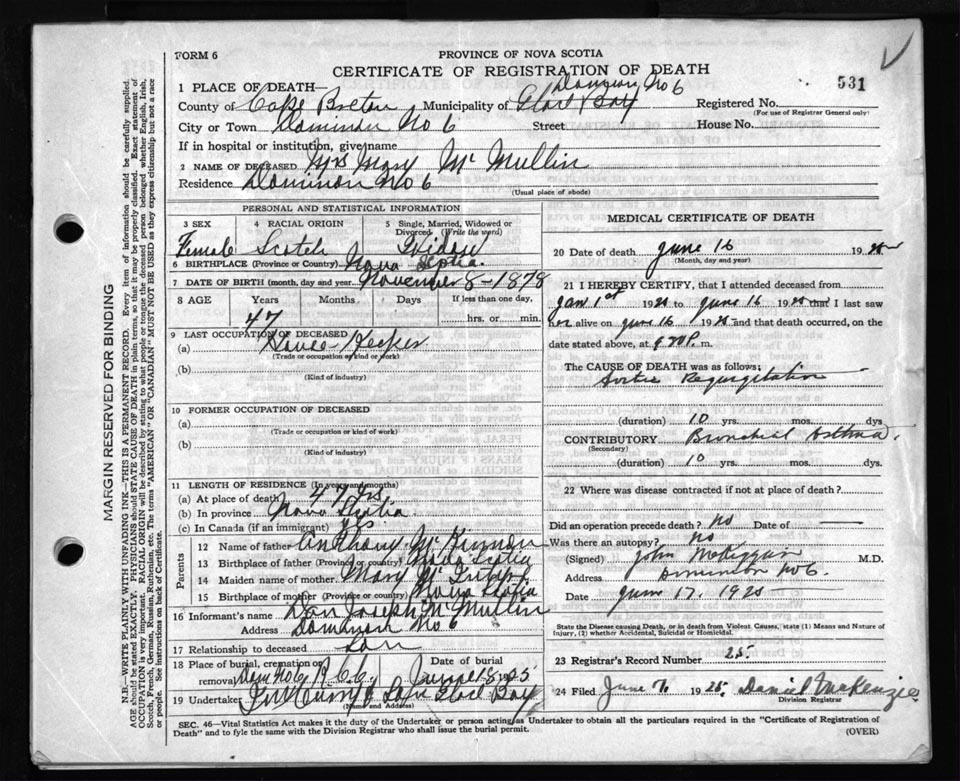 FORM 6
PROVINCE OF NOVA SCOTIA
CERTIFICATE OF REGISTRATION OF DEATH
531
1 PLACE OF DEATH— Dominion No 6
County of Cape Breton Municipality of Glace Bay Registered No.
(For use of Registrar General only)
City or Town Dominion No 6 Street House No.
If in hospital or institution, give name
2 NAME OF DECEASED Mrs Mary McMullin
Residence Dominion No 6
(Usual place of abode)
PERSONAL AND STATISTICAL INFORMATION
3 SEX 4 RACIAL ORIGIN 5 Single, Married, Widowed or Divorced. (Write the word)
Female Scotch Widow
6 BIRTHPLACE (Province or Country) Nova Scotia.
7 DATE OF BIRTH (month, day and year) November 8-1878
8 AGE Years Months Days If less than one day,
47 hrs. or min.
9 LAST OCCUPATION OF DECEASED
(a) House Keeper
(Trade or occupation or kind of work)
(b)
(Kind of industry)
10 FORMER OCCUPATION OF DECEASED
(a)
(Trade or occupation or kind of work)
(b)
(Kind of industry)
11 LENGTH OF RESIDENCE (In years and months)
(a) At place of death 47 yrs
(b) In province Nova Scotia
(c) In Canada (if an immigrant) yes
Parents
12 Name of father Anthony McKinnon
13 Birthplace of father (Province or Country) Nova Scotia
14 Maiden name of mother Mary
15 Birthplace of mother (Province or Country) Nova Scotia
16 Informant's name Dan Joseph McMullin
Address Dominion No 6
17 Relationship to deceased Son
18 Place of burial, cremation or removal Dom No 6 R.C.C. Date of burial June 18 1925
19 Undertaker Glace Bay
(Name and Address)
MEDICAL CERTIFICATE OF DEATH
20 Date of death June 16 1925
(Month, day and year)
21 I HEREBY CERTIFY, that I attended deceased from
Jan 1st 1925 to June 16 1925 that I last saw
her alive on June 16 1925 and that death occurred, on the
date stated above, at P. m.
The CAUSE OF DEATH was as follows;
Aortic Regurgitation
(duration) 10 yrs. mos. dys
CONTRIBUTORY Bronchial Asthma.
(Secondary)
(duration) 10 yrs. mos. dys.
22 Where was disease contracted if not at place of death?
Did an operation precede death? No Date of —
Was there an autopsy? No
(Signed) John M.D.
Address Dominion No 6.
Date June 17. 1925
State the Disease causing Death, or in death from Violent Causes, state (1) Means and Nature of
Injury, (2) whether Accidental, Suicidal or Homicidal.
23 Registrar's Record Number 25.
24 Filed June 1925. Daniel McKenzie
Division Registrar
SEC. 46—Vital Statistics Act makes it the duty of the Undertaker or person acting as Undertaker to obtain all the particulars required in the "Certificate of Registration of
Death" and to fyle the same with the Division Registrar who shall issue the burial permit.
(OVER)
MARGIN RESERVED FOR BINDING
N.B.—WRITE PLAINLY WITH UNFADING INK—THIS IS A PERMANENT RECORD. Every item of information should be carefully supplied.
AGE should be stated EXACTLY. PHYSICIANS should STATE CAUSE OF DEATH in plain terms, so that it may be properly classified. Exact statement of
OCCUPATION is very important. RACIAL ORIGIN will be described by stating to what people or tongue the deceased person belonged whether English, Irish,
Scotch, French, German, Russian, Ruthenian, etc. The terms "AMERICAN" OR "CANADIAN" MUST NOT BE USED as they express citizenship but not a race
or people. See instructions on back of Certificate.